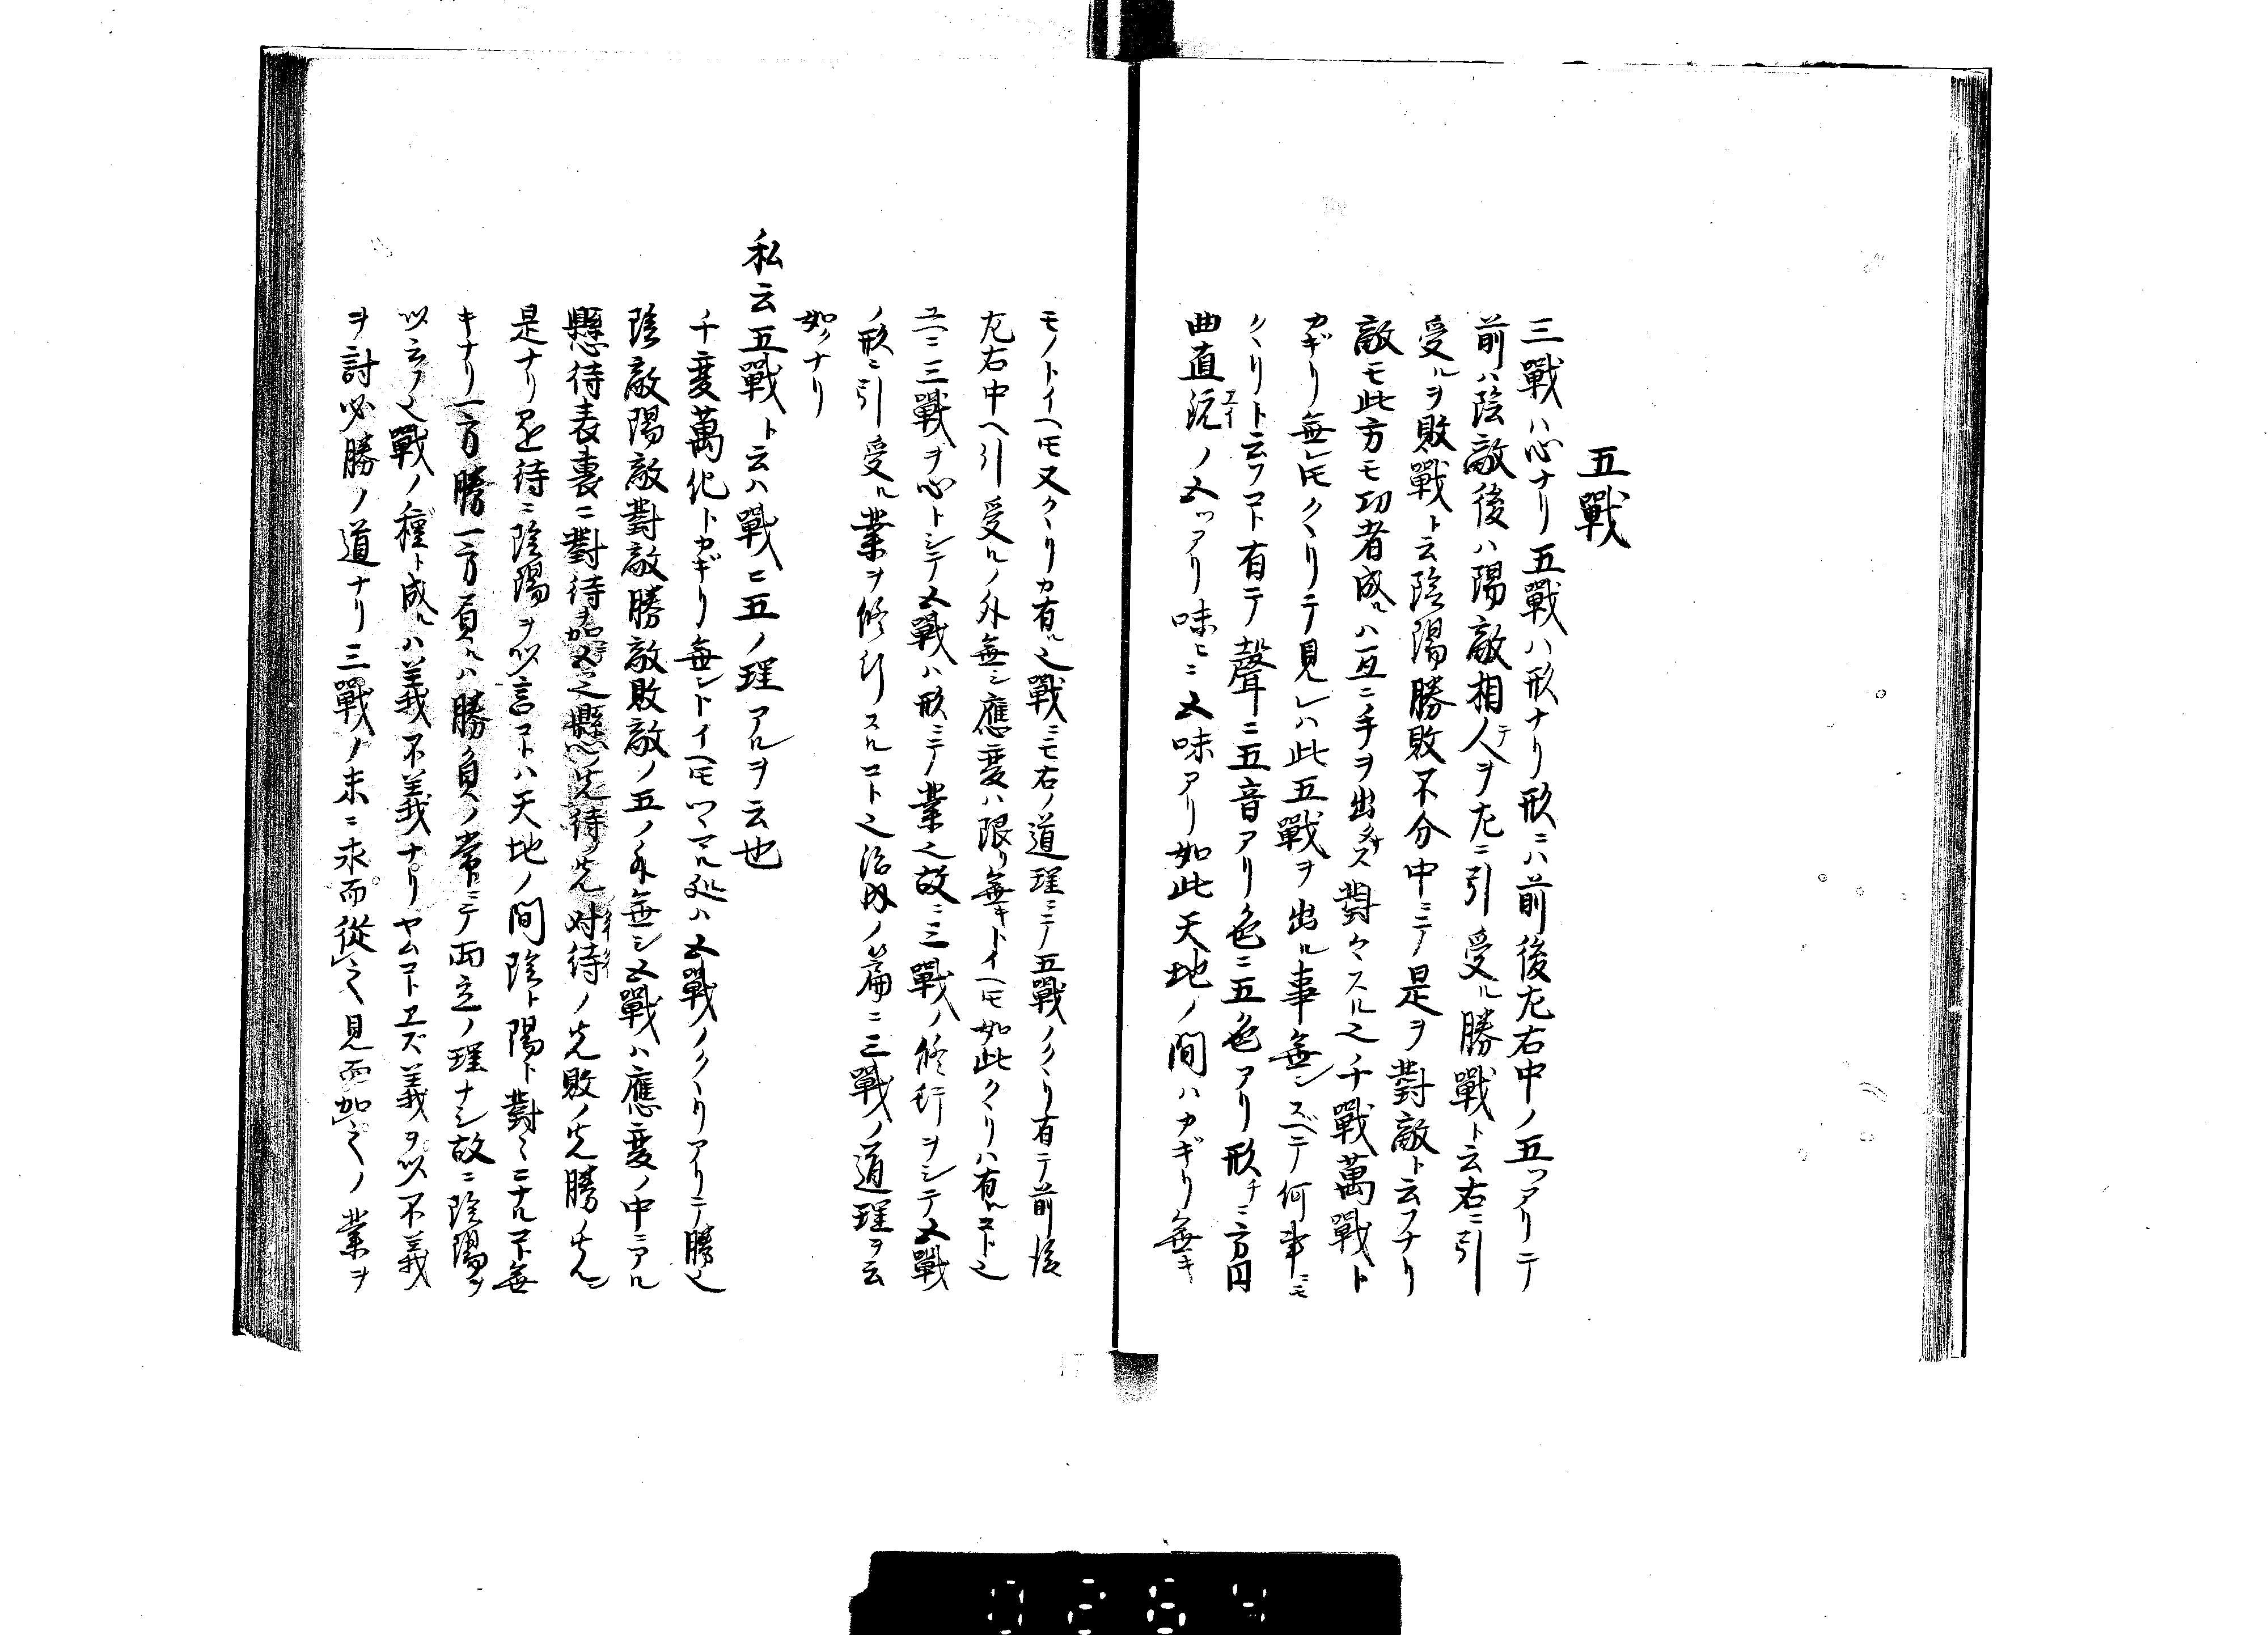 五戰
三戰ハ心ナリ五戰ハ形ナリ形ニハ前後左右中ノ五ツアリテ
前ハ陰敵後ハ陽敵相人テヲ左ニ引受ル勝戰ト云右ニ引
受ルヲ敗戰ト云陰陽勝敗不分中ニテ是ヲ對敵ト云フナリ
敵モ此方モ功者成ルハ互ニ手ヲ出サズ對々スル也千戰萬戰ト
カギリ無レ𪜈クヽリテ見レハ此五戰ヲ出ル事無シスベテ何事ニモ
クヽリト云フヿ有テ聲ニ五音アリ色ニ五色アリ形チニ方円
曲直ノ五ツアリ味ヒニ五味アリ如此天地ノ間ハカギリ無キ
モノトイヘ𪜈又クヽリカ有ル也戰ニモ右ノ道理ニテ五戰ノクヽリ有テ前後
左右中ヘ引受ルノ外無シ應変ハ限リ無キトイヘ𪜈如此クヽリハ有ルヿ也
ユヘニ三戰ヲ心トシテ五戰ハ形ニテノ業也故ニ三戰ノ修行ヲシテ五戰
ノ形ニ引受ル業ヲ修行スルヿ也治内ノ篇ニ三戰ノ道理ヲ云
如クナリ
私云五戰ト云ハ戰ニ五ノ理アルヲ云也
千変萬化トカギリ無シトイヘ𪜈ツヽマル処ハ五戰ノクヽリアリテ勝也
陰敵陽敵對敵勝敵敗敵ノ五ノ外無シ五戰ハ應変ノ中ニアル
懸待表裏ニ對待ヲ加之懸ノ先待ノ先対待ノ先敗ノ先勝ノ先
是ナリ是ヲ待ニ陰陽ヲ以言ヿハ天地ノ間陰ト陽ト對々ニナルヿ無
キナリ一方勝一方負ルハ勝負ノ常ニテ両立ノ理ナシ故ニ陰陽ヲ
以云フ也戰ノ種ト成ルハ義不義ナリヤムヿヱズ義ヲ以不義
ヲ討必勝ノ道ナリ三戰ノ末ニ求而從之見而加之ノ業ヲ